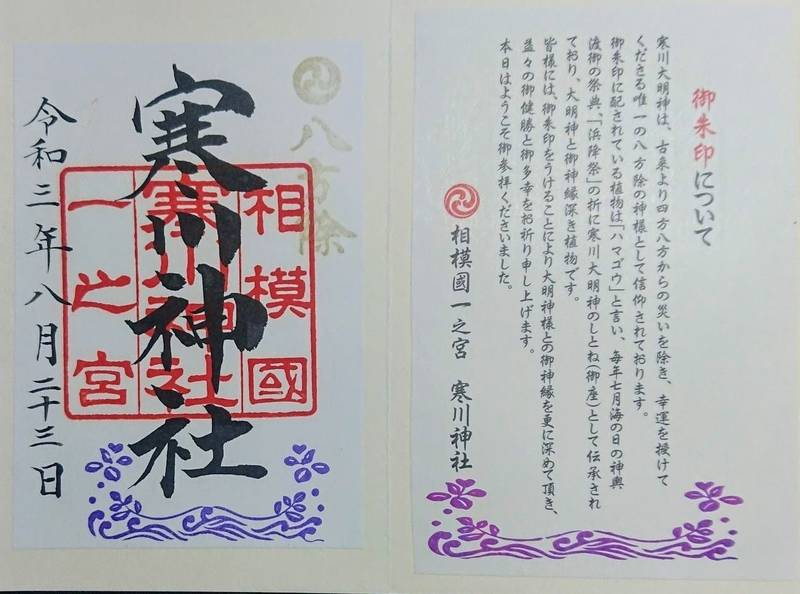 御朱印について
寒川大明神は、古来より四方八方からの災いを除き、幸運を授けて
くださる唯一の八方除の神様として信仰されております。
御朱印に配されている植物は「ハマゴウ」と言い、毎年七月海の日の神輿
渡御の祭典、「浜降祭」の折に寒川大明神のしとね(御座)として伝承され
ており、大明神と御神縁深き植物です。
皆様には、御朱印をうけることにより大明神様との御神縁を更に深めて頂き、
益々の御健勝と御多幸をお祈り申し上げます。
本日はようこそ御参拝くださいました。
相模國一之宮 寒川神社
八方除
相模國
寒川神社
一之宮
寒川神社
令和三年八月二十三日